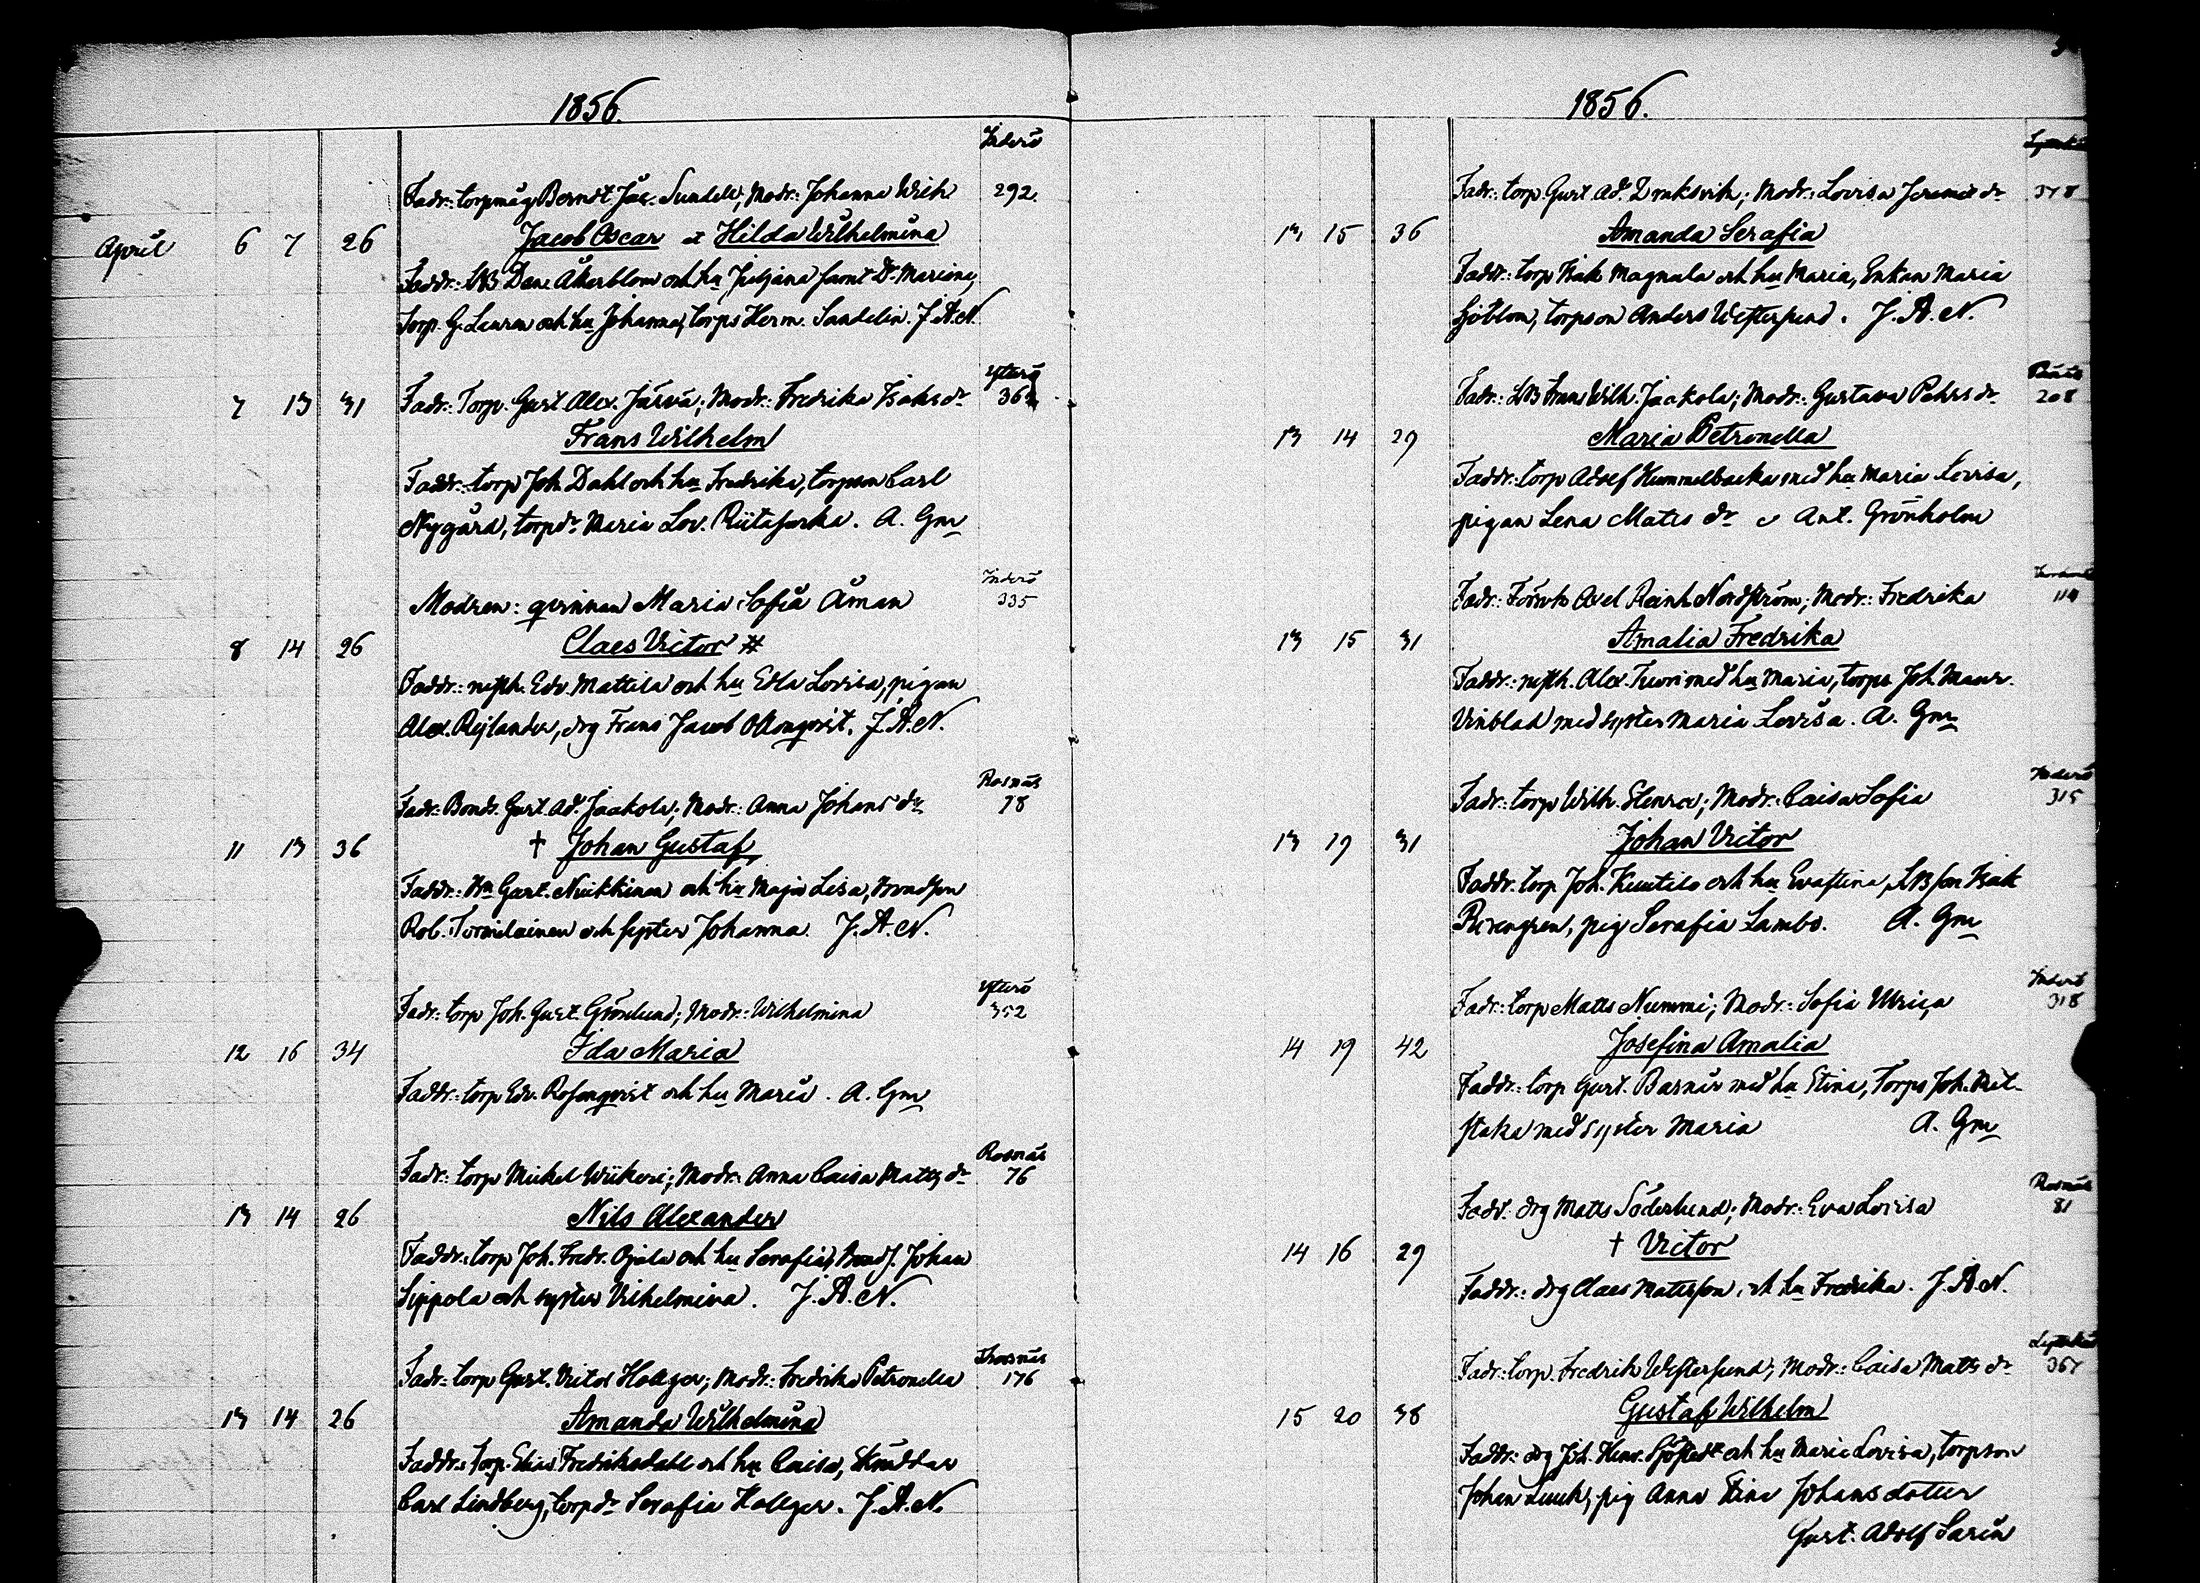 1856.
Inderö
Fadr: torpmåg Berndt Jac. Sundell; Modr: Johanna Wilh 292
April 6 7 26 Jacob Oscar et Hilda Wilhelmina
Faddr: LB Dan Åkerblom och hu Juljana samt Dr Mariana,
Torp. G. Lauren och hu Johanna, torps Herm. Sandelin. J. A. N.
Ytterö
7 13 31 Fadr: Torp. Gust Alex. Järvä; Modr: Fredrika Isaksdr
Frans Wilhelm
Faddr: torp Joh Dahl och hu Fredrika, torpson Carl
Nygård, torpdr Maria Lov. A. Gm
Inderö
Modren: qvinnan Maria Sofia Åman 335
8 14 26 Claes Victor #
Faddr: Edv. Mattila och hu Edla Lovisa, pigan
Alex. Rejlander, drg Frans Jacob J. A. N.
Rosnäs
Fadr: Bonds. Gust. Ad. Jaakola; Modr: Anna Johansdr 78
11 13 36 † Johan Gustaf
Faddr: Gust. Niukkinen och hu Maja Lisa, Bondson
Rob. och syster Johanna J. A. N.
Ytterö
Fadr: torp Joh. Gust. Grönlund; Modr: Wilhelmina 352
12 16 34 Ida Maria
Faddr: torp Edv. Rosenqvist och hu Maria. A. Gm
Rosnäs
Fadr: torp Mickel Modr: Anna Caisa Mattsdr 76
13 14 26 Nils Alexander
Faddr: torp Joh. Fredr. Ojala och hu Serafia, Bonds. Johan
Sippola och syster Vilhelmina. J. A. N.
Fadr: torp Gust. Victor Hollger; Modr: Fredrika Petronella 176
13 14 26 Amanda Wilhelmina
Faddr: torp. Elias Fredriksdahl och hu Caisa, Skräddar
Carl Lindberg, torpdr Serafia Hollger. J. A. N.
1856.
Fadr: torp. Gust Ad. Modr: Lovisa Jeremiedr 378
13 15 36 Amanda Serafia
Faddr: torp Isak Magnula och hu Maria, Enkan Maria
Sjöblom, torpson Anders Westersund. J. A. N.
Fadr: LB Frans Wilh. Jaakola; Modr: Gustava Pehrsdr 208
13 14 29 Maria Petronella
Faddr: torp Adolf Hummelbacka med hu Maria Lovisa,
pigan Lena Matsdr Ant. Grönholm
Fadr: Axel Reinh Nordström; Modr: Fredrika 114
13 15 31 Amalia Fredrika
Faddr: Alex. med hu Maria, torps Joh. Maur.
Vinblad med syster Maria Lovisa. A. Gm
Inderö
Fadr: torp Wilh. Modr: Caisa Sofia 315
13 19 31 Johan Victor
Faddr. torp Joh. Kuutilo och hu Evastina, LBson Isak
pig Serafia Lambo. A. Gm
Inderö
Fadr: torp Matts Nummi; Modr: Sofia Ulrica 318
14 19 42 Josefina Amalia
Faddr: torp Gust. Basnär med hu Stina, Torps Joh. Mit-
staka med syster Maria A. Gm
Rosnäs
Fadr. drg Matts Söderlund; Modr: Eva Lovisa 81
14 16 29 † Victor
Faddr: drg Claes Mattsson och hu Fredrika. J. A. N.
Fadr: torp. Fredrik Westersund; Modr: Caisa Mattsdr
15 20 38 Gustaf Wilhelm
Faddr: drg Joh. Henr. Sjöstedt och hu Maria Lovisa, torpson
Johan Luuk, pig Anna Stina Johansdotter
Gust. Adolf Sarin